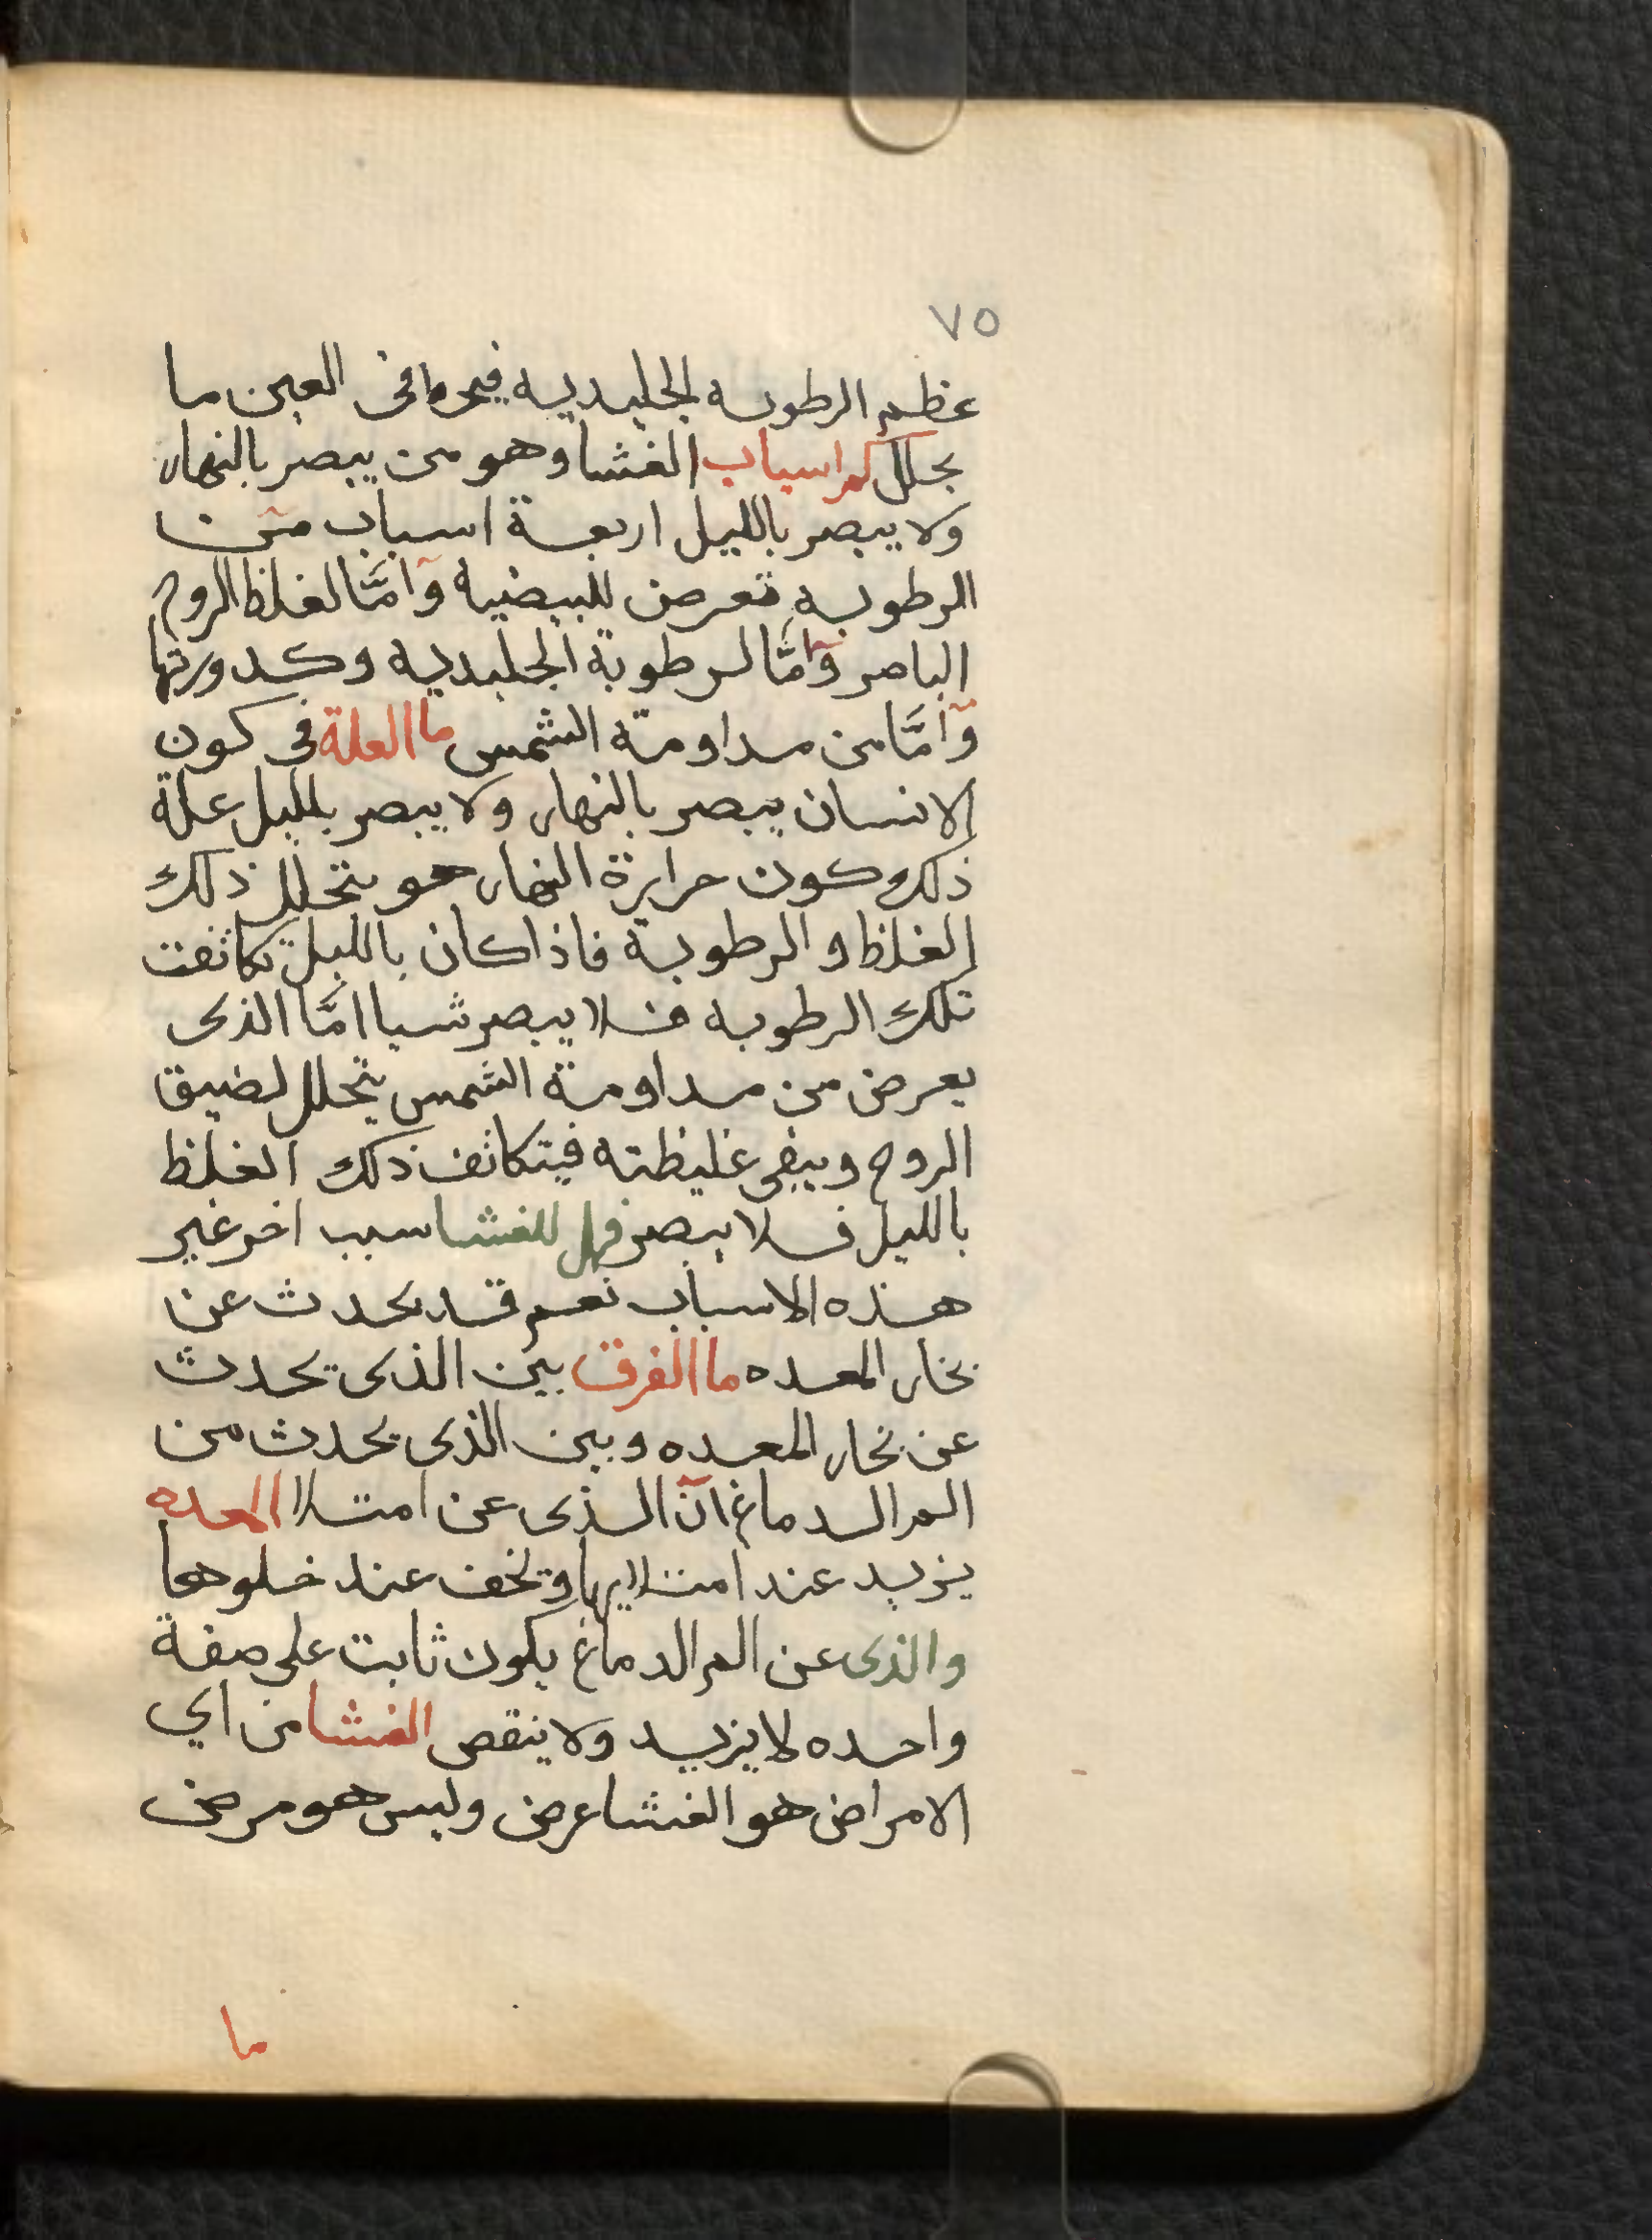 ٧٥
عظم الرطوبه الجليديه فيحما فى العين ما
بحلل كم اسباب الغشا وهو من يبصر بالنهار
ولا يبصر بالليل اربعة اسباب من
الرطوبه تعرض للبيضيه وامَّا لغلظ الروح
الباصر وامَّا لرطوبة الجليديه وكدورتها
وامَّا من مداومة الشمس ما العلة فى كون
الانسان يبصر بالنهار ولا يبصر بلليل علة
ذلك كون حرارة النهار هو يتحلل ذلك
الغلظ و الرطوبة فاذا كان بالليل تكاثفت
تلك الرطوبه فلا يبصر شيا امَّا الذى
يعرض من مداومة الشمس يتحلل لضيق
الروح ويبقى غليظته فيتكاثف ذلك الغلظ
بالليل فلا يبصر فهل للغشا سبب اخر غير
هذه الاسباب نعم قد يحدث عن
بخار المعده ما الفرق بين الذى يحدث
عن بخار المعده وبين الذى يحدث من
الم الدماغ ان الذى عن امتلا المعده
يزيد عند امتلايها ويخف عند خلوها
والذى عن الم الدماغ يكون ثابت على صفة
واحده لا يزيد ولا ينقص الغشا من اي
الامراض هو الغشا عرض وليس هو مرض
ما